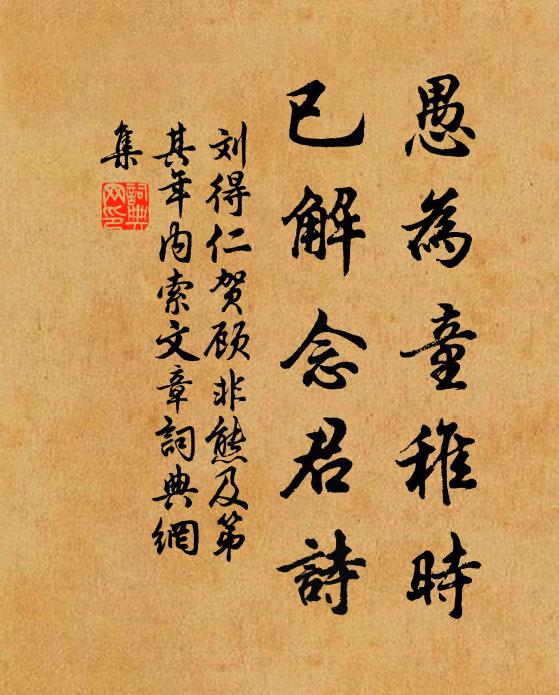 愚為童稚時
已解念君詩
刘得仁贺顾非熊及第
其年内索文章詞典網
集
詞典网印